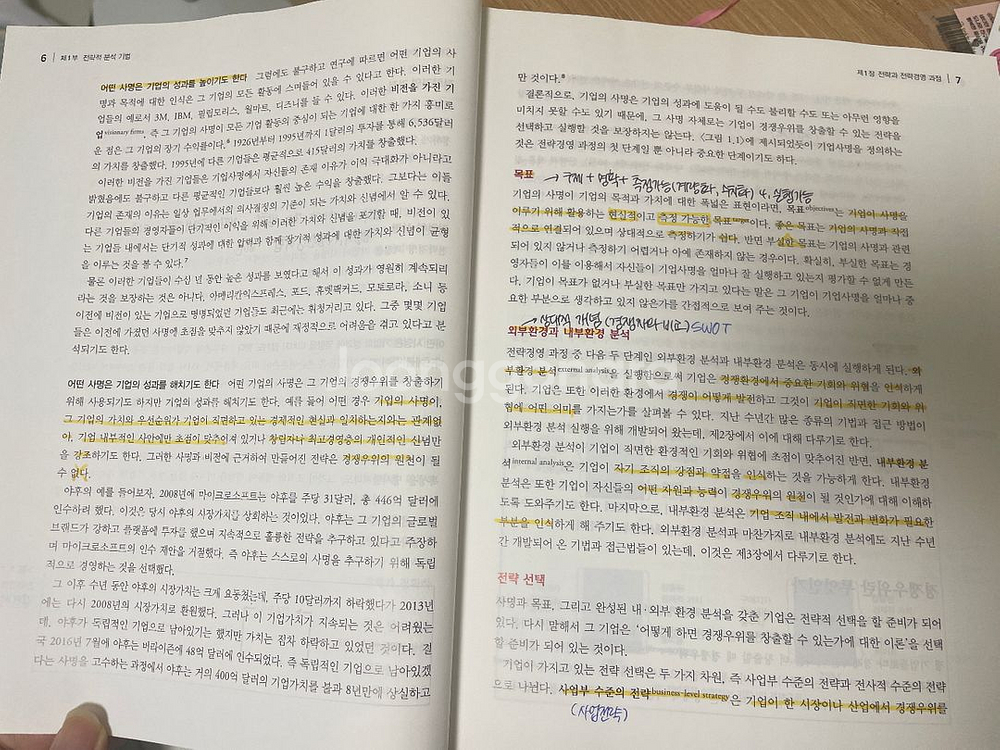 6 | 제1부 전략적 분석 기법
어떤 사명은 기업의 성과를 높이기도 한다 그럼에도 불구하고 연구에 따르면 어떤 기업의 사
명과 목적에 대한 인식은 그 기업의 모든 활동에 스며들어 있을 수 있다고 한다. 이러한 기
업들의 예로서 3M, IBM, 필립모리스, 월마트, 디즈니를 들 수 있다. 이러한 비전을 가진 기
업visionary firms, 즉 그 기업의 사명이 모든 기업 활동의 중심이 되는 기업에 대한 한 가지 흥미로
운 점은 그 기업의 장기 수익률이다.⁶ 1926년부터 1995년까지 1달러의 투자를 통해 6,536달러
의 가치를 창출했다. 1995년에 다른 기업들은 평균적으로 415달러의 가치를 창출했다.
이러한 비전을 가진 기업들은 기업사명에서 자신들의 존재 이유가 이익 극대화가 아니라고
밝혔음에도 불구하고 다른 평균적인 기업들보다 훨씬 높은 수익을 창출했다. 그보다는 이들
기업의 존재의 이유는 일상 업무에서의 의사결정의 기준이 되는 가치와 신념에서 알 수 있다.
다른 기업들의 경영자들이 단기적인 이익을 위해 이러한 가치와 신념을 포기할 때, 비전이 있
는 기업들 내에서는 단기적 성과에 대한 압력과 함께 장기적 성과에 대한 가치와 신념이 균형
을 이루는 것을 볼 수 있다.⁷
물론 이러한 기업들이 수십 년 동안 높은 성과를 보였다고 해서 이 성과가 영원히 계속되리
라는 것을 보장하는 것은 아니다. 아메리칸익스프레스, 포드, 휴렛팩커드, 모토로라, 소니 등
이전에 비전이 있는 기업으로 명명되었던 기업들도 최근에는 휘청거리고 있다. 그중 몇몇 기업
들은 이전에 가졌던 사명에 초점을 맞추지 않았기 때문에 재정적으로 어려움을 겪고 있다고 분
석되기도 한다.
어떤 사명은 기업의 성과를 해치기도 한다 어떤 기업의 사명은 그 기업의 경쟁우위를 창출하기
위해 사용되기도 하지만 기업의 성과를 해치기도 한다. 예를 들어 어떤 경우 기업의 사명이,
그 기업의 가치와 우선순위가 기업이 직면하고 있는 경제적인 현실과 일치하는지와는 관계없
이, 기업 내부적인 사안에만 초점이 맞추어져 있기나 창립자나 최고경영층의 개인적인 신념만
을 강조하기도 한다. 그러한 사명과 비전에 근거하여 만들어진 전략은 경쟁우위의 원천이 될
수 없다.
야후의 예를 들어보자. 2008년에 마이크로소프트는 야후를 주당 31달러, 총 446억 달러에
인수하려 했다. 이것은 당시 야후의 시장가치를 상회하는 것이었다. 야후는 그 기업의 글로벌
브랜드가 강하고 플랫폼에 투자를 했으며 지속적으로 훌륭한 전략을 추구하고 있다고 주장하
며 마이크로소프트의 인수 제안을 거절했다. 즉 야후는 스스로의 사명을 추구하기 위해 독립
적으로 경영하는 것을 선택했다.
그 이후 수년 동안 야후의 시장가치는 크게 요동쳤는데, 주당 10달러까지 하락했다가 2013년
에는 다시 2008년의 시장가치로 환원했다. 그러나 이 기업가치가 지속되는 것은 어려웠는
데, 야후가 독립적인 기업으로 남아있기는 했지만 가치는 점차 하락하고 있었던 것이다. 결
국 2016년 7월에 야후는 버라이즌에 48억 달러에 인수되었다. 즉 독립적인 기업으로 남아있겠
다는 사명을 고수하는 과정에서 야후는 거의 400억 달러의 기업가치를 불과 8년만에 상실하고
제1장 전략과 전략경영 과정 | 7
만 것이다.⁸
결론적으로, 기업의 사명은 기업의 성과에 도움이 될 수도 불리할 수도 또는 아무런 영향을
미치지 못할 수도 있기 때문에, 그 사명 자체로는 기업이 경쟁우위를 창출할 수 있는 전략을
선택하고 실행할 것을 보장하지는 않는다. 〈그림 1.1〉에 제시되었듯이 기업사명을 정의하는
것은 전략경영 과정의 첫 단계일 뿐 아니라 중요한 단계이기도 하다.
목표 → 구체 + 명확 + 측정가능(계량화, 수치화) 4. 실행가능
기업의 사명이 기업의 목적과 가치에 대한 폭넓은 표현이라면, 목표objectives는 기업이 사명을
이루기 위해 활용하는 현실적이고 측정 가능한 목표target이다. 좋은 목표는 기업의 사명과 직접
적으로 연결되어 있으며 상대적으로 측정하기가 쉽다. 반면 부실한 목표는 기업의 사명과 관련
되어 있지 않거나 측정하기 어렵거나 아예 존재하지 않는 경우이다. 확실히, 부실한 목표는 경
영자들이 이를 이용해서 자신들이 기업사명을 얼마나 잘 실행하고 있는지 평가할 수 없게 만든
다. 기업이 목표가 없거나 부실한 목표만 가지고 있다는 말은 그 기업이 기업사명을 얼마나 중
요한 부분으로 생각하고 있지 않은가를 간접적으로 보여 주는 것이다.
→ 상대적 개념 (경쟁자와 비교) SWOT
외부환경과 내부환경 분석
전략경영 과정 중 다음 두 단계인 외부환경 분석과 내부환경 분석은 동시에 실행하게 된다. 외
부환경 분석external analysis을 실행함으로써 기업은 경쟁환경에서 중요한 기회와 위협을 인식하게
된다. 기업은 또한 이러한 환경에서 경쟁이 어떻게 발전하고 그것이 기업이 직면한 기회와 위
협에 어떤 의미를 가지는가를 살펴볼 수 있다. 지난 수년간 많은 종류의 기법과 접근 방법이
외부환경 분석 실행을 위해 개발되어 왔는데, 제2장에서 이에 대해 다루기로 한다.
외부환경 분석이 기업이 직면한 환경적인 기회와 위협에 초점이 맞추어진 반면, 내부환경 분
석internal analysis은 기업이 자기 조직의 강점과 약점을 인식하는 것을 가능하게 한다. 내부환경
분석은 또한 기업이 자신들의 어떤 자원과 능력이 경쟁우위의 원천이 될 것인가에 대해 이해하
도록 도와주기도 한다. 마지막으로, 내부환경 분석은 기업 조직 내에서 발전과 변화가 필요한
부분을 인식하게 해 주기도 한다. 외부환경 분석과 마찬가지로 내부환경 분석에도 지난 수년
간 개발되어 온 기법과 접근법들이 있는데, 이것은 제3장에서 다루기로 한다.
전략 선택
사명과 목표, 그리고 완성된 내·외부 환경 분석을 갖춘 기업은 전략적 선택을 할 준비가 되어
있다. 다시 말해서 그 기업은 '어떻게 하면 경쟁우위를 창출할 수 있는가에 대한 이론'을 선택
할 준비가 되어 있는 것이다.
기업이 가지고 있는 전략 선택은 두 가지 차원, 즉 사업부 수준의 전략과 전사적 수준의 전략
으로 나뉜다. 사업부 수준의 전략business-level strategy은 기업이 한 시장이나 산업에서 경쟁우위를
(사업전략)